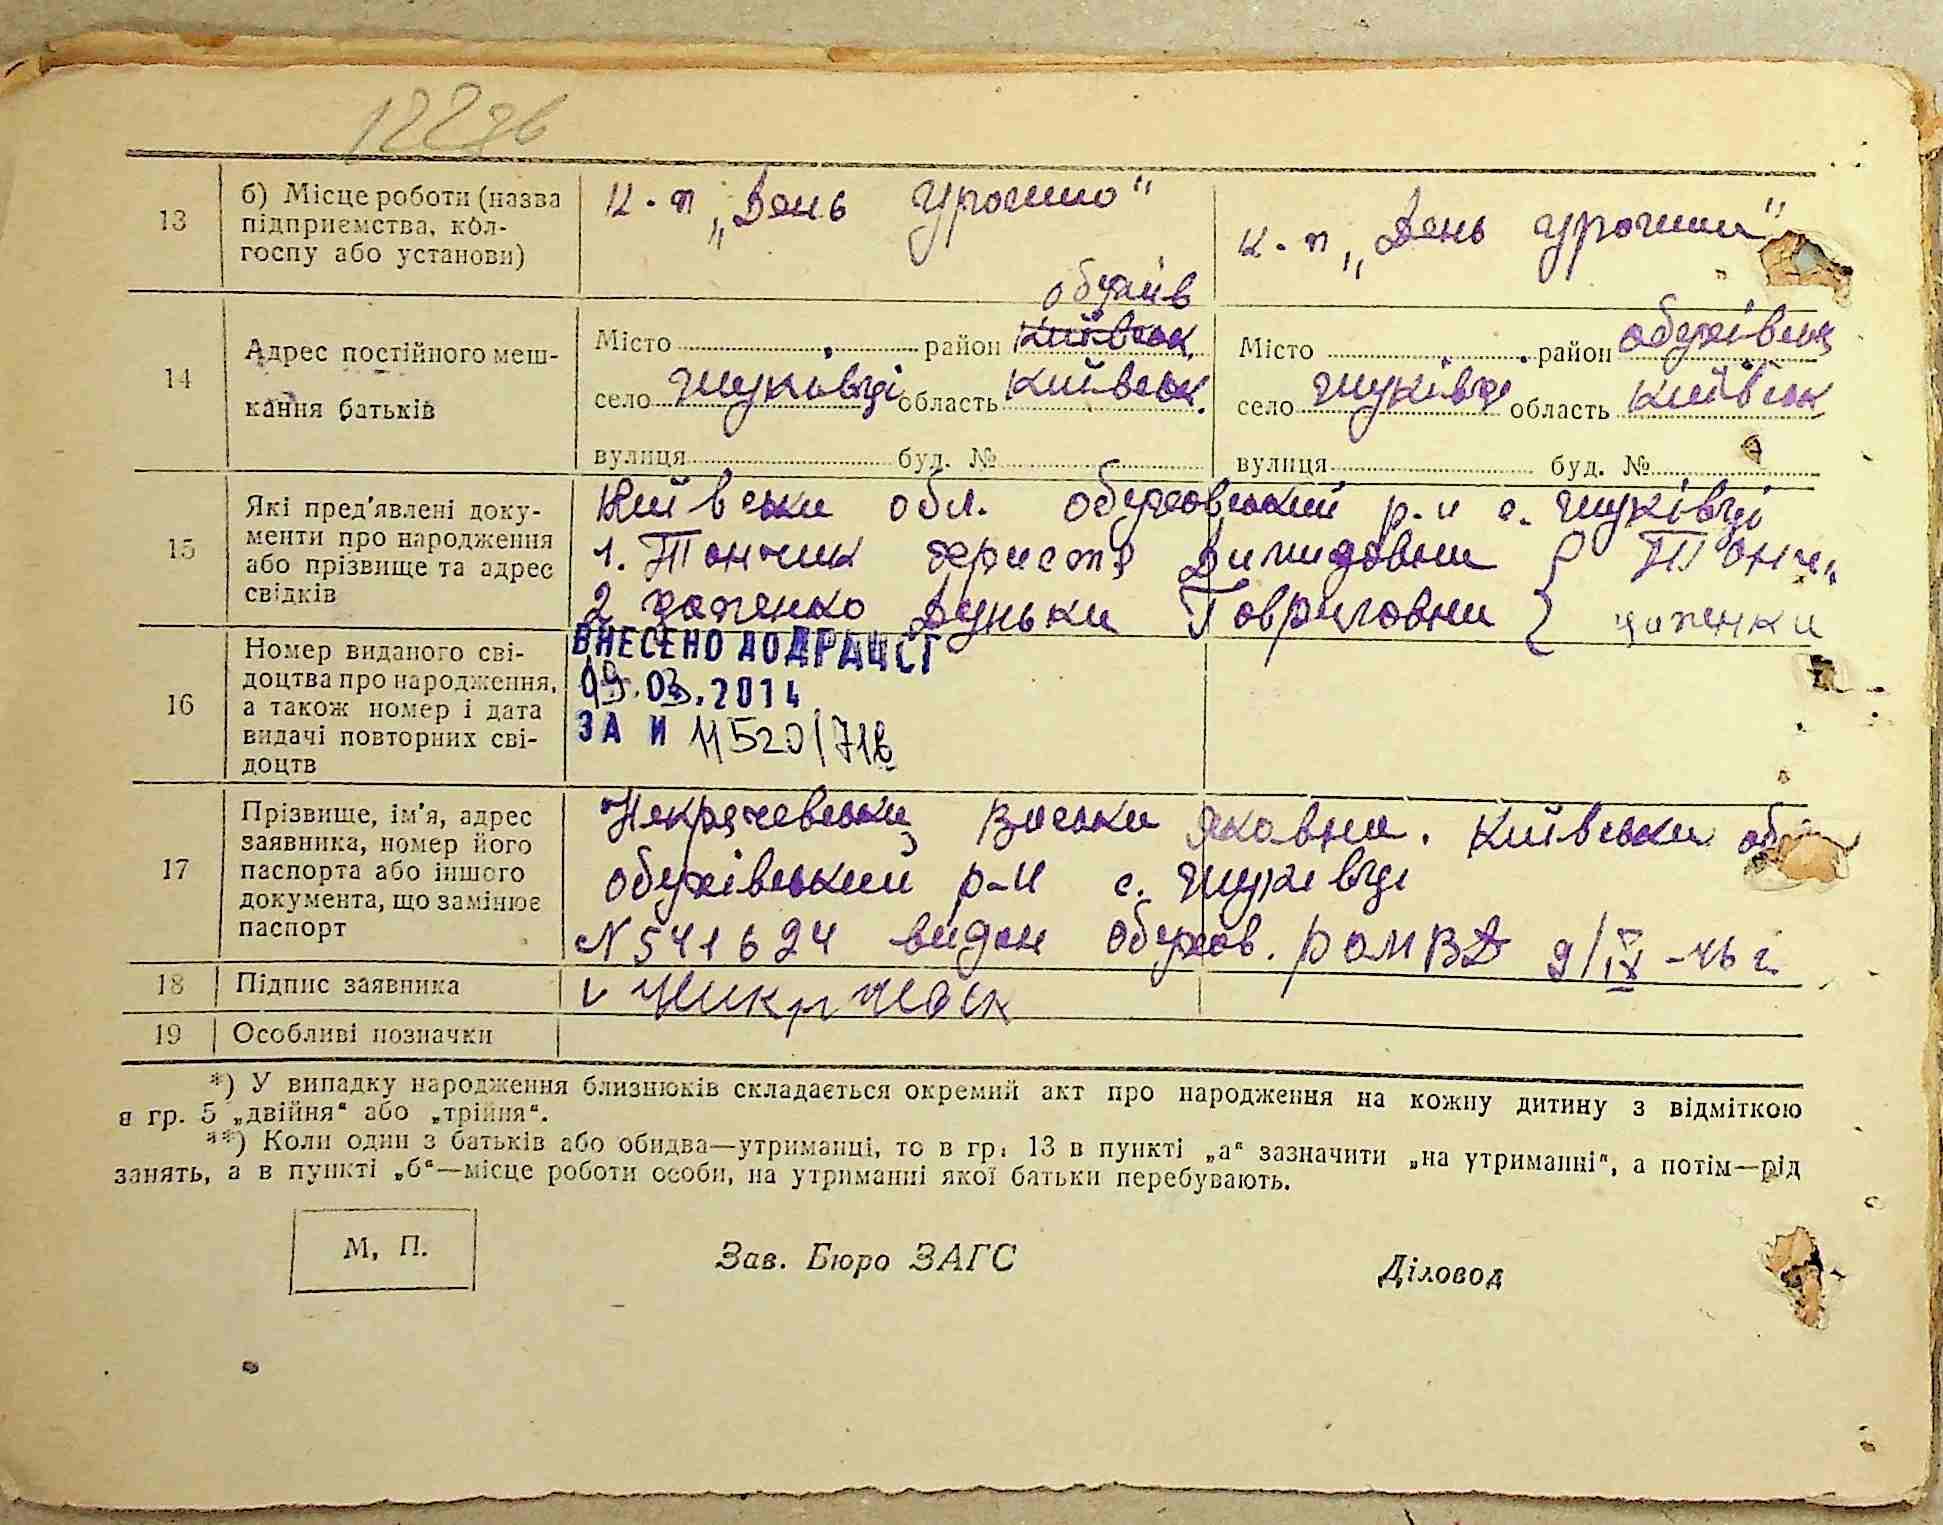 13
б) Місце роботи (назва
підприємства, кол-
госпу або установи)
к-п „День Урожаю"
к-п „День Урожаю"
14
Адрес постійного меш-
кання батьків
обухів
Місто район Київськ.
село Жуківці область Київськ.
вулиця буд. №
Місто район обухівськ
село Жуківці область Київськ
вулиця буд. №
15
Які пред'явлені доку-
менти про народження
або прізвище та адрес
свідків
Київська обл. обуховський р-н с. Жуківці
1. Тончик Христя Димидовна
2 Гавриловна
16
Номер виданого сві-
доцтва про народження,
а також номер і дата
видачі повторних сві-
доцтв
ВНЕСЕНО ДО ДРАЦСГ
19.03.2014
ЗА И 11520/71в
17
Прізвище, ім'я, адрес
заявника, номер його
паспорта або іншого
документа, що замінює
паспорт
Яковна. Київська об
обухівський р-н с. Жуківці
N 541624 видан Обухов. РОМВД 9/IX-46 г.
18
Підпис заявника
19
Особливі позначки
*) У випадку народження близнюків складається окремий акт про народження на кожну дитину з відміткою
в гр. 5 „двійня" або „трійня".
**) Коли один з батьків або обидва—утриманці, то в гр. 13 в пункті „а" зазначити „на утриманні", а потім—рід
занять, а в пункті „б"—місце роботи особи, на утриманні якої батьки перебувають.
М. П.
Зав. Бюро ЗАГС
Діловод